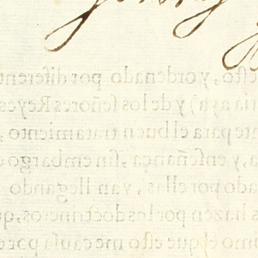 eſto, y ordenado por diferent
tia aya) y de los ſeñores Reyes
nte para el buen tratamiento,
a, y enſeñança, ſin embargo
ado por ellas, van llegando
s hazen por los doctrineros, qu
omo el que eſto me cauſa por